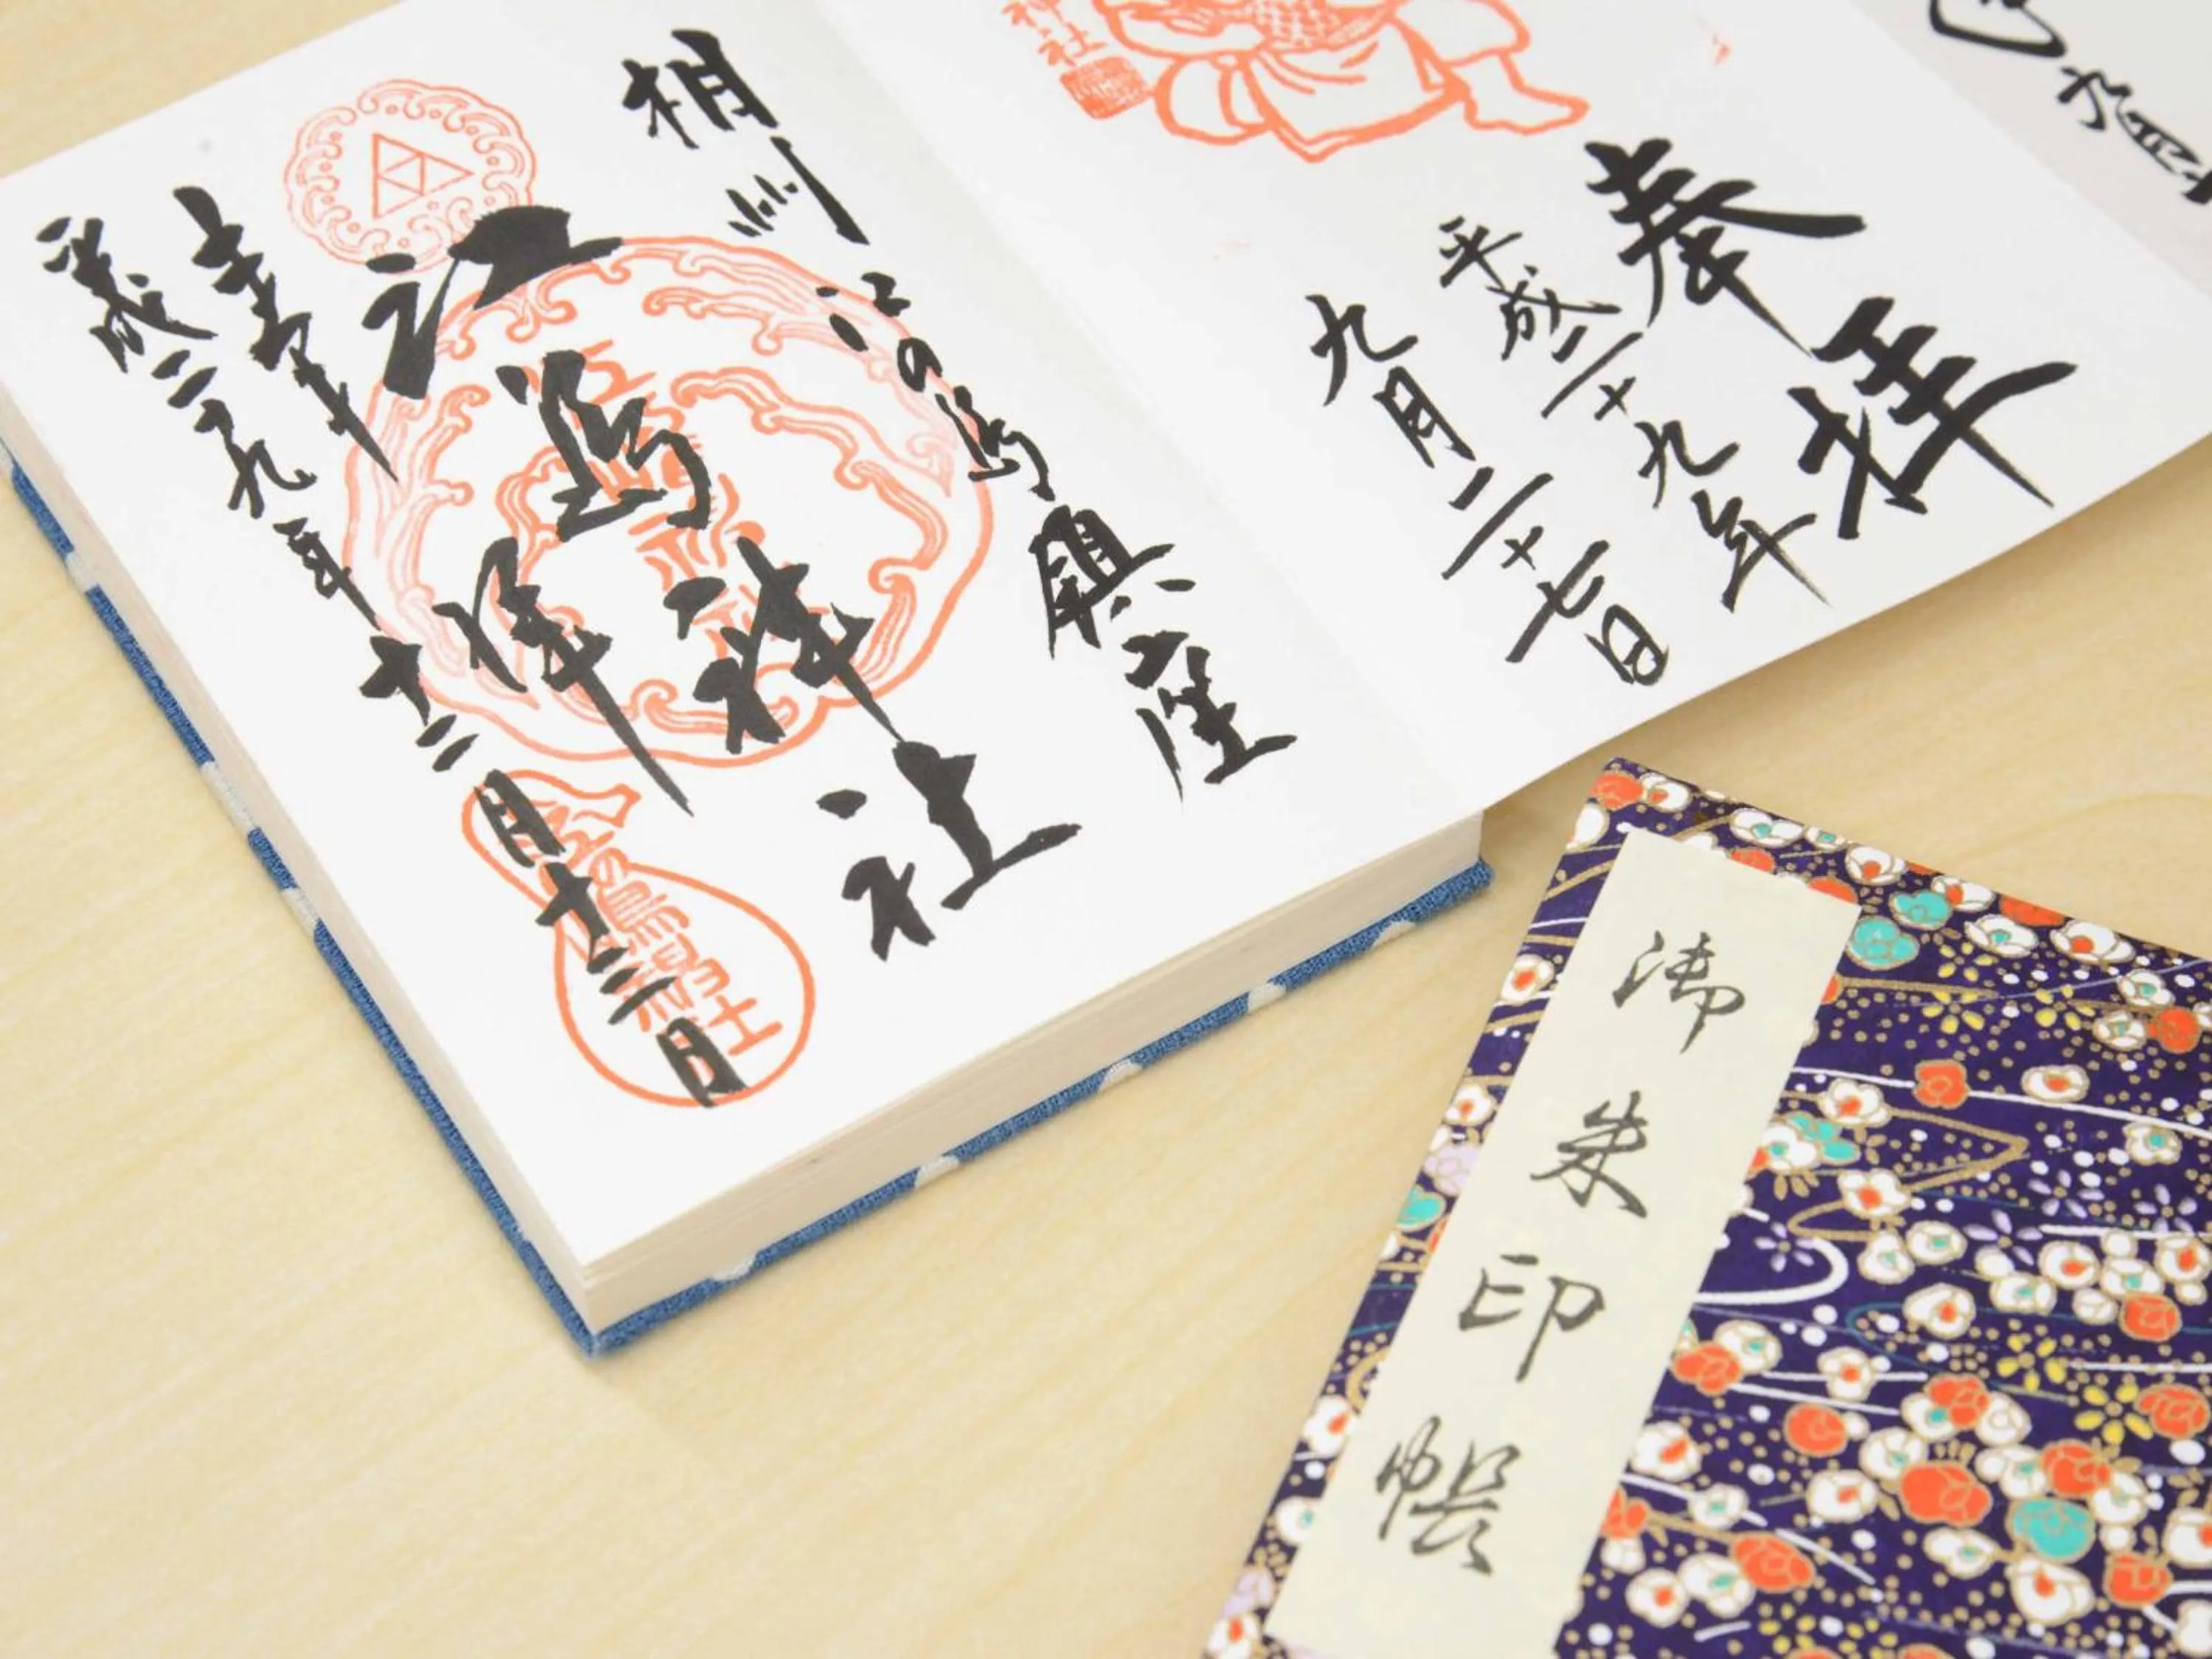 奉拝
平成二十九年
九月二十七日
神社
相州
江の島鎮座
江島神社
奉拝
平成二十九年十二月十三日
御朱印帳